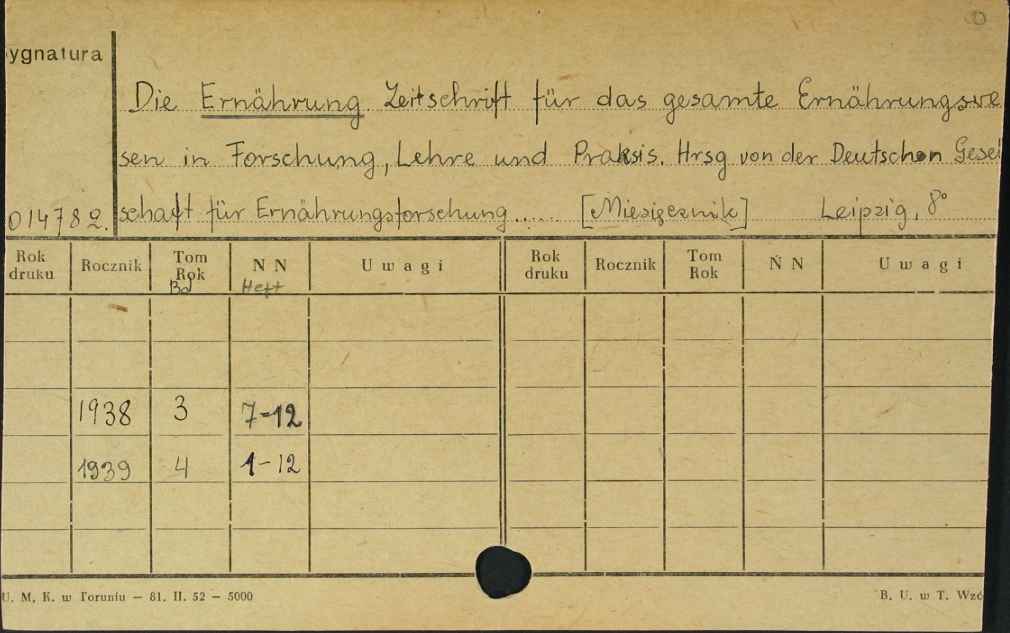 ygnatura
Die Ernährung Zeitschrift für das gesamte Ernährungswe
sen in Forschung, Lehre und Praksis. Hrsg von der Deutschen Gesel
014782. schaft für Ernährungsforschung...... [Miesięcznik] Leipzig, 8°
Rok druku Rocznik Tom Rok N N Uwagi Rok druku Rocznik Tom Rok N N Uwagi
Bd Heft
1938 3 7-12
1939 4 1-12
U. M. K. w Toruniu — 81. II. 52 — 5000 B. U. w T. Wzó